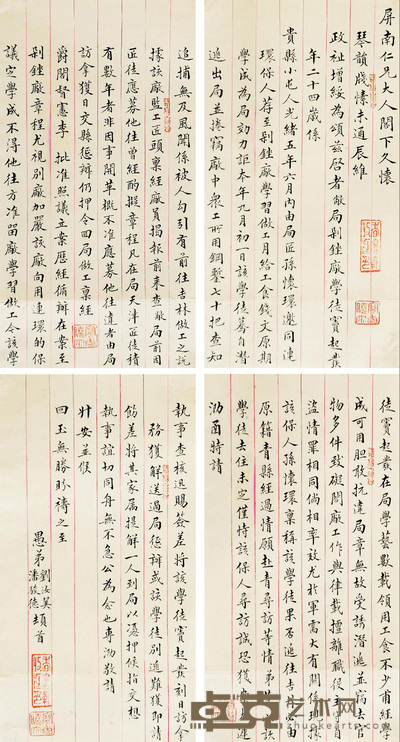 屏南仁兄大人閣下久懷
琴韻箋愫未通辰維
政祉增綏為頌茲啓者敝局剁銼廠學徒竇起發
年二十四歲係
貴縣小屯人光緒五年六月內由局匠孫懷環邀同連
環保人荐至剁銼廠學習做工月給工食錢文原期
學成為局効力詎本年九月初一日該學徒驀自潛
逃出局並捲竊廠中眾工所用鋼鏨七十把查知
追捕無及風聞係被人勾引有前往吉林做工之說
據該廠監工匠頭稟經廠員揭報前來查敝局前因
匠徒應募他往曾經酌擬章程凡在局天津匠徒積
有數年者非因事開革概不准應募他往違者由局
訪拿獲日交縣懲辦仍押令回局做工稟經
爵閣督憲李 批准照議立案歷經備辦在案至
剁銼廠章程尤視別廠加嚴該廠向用連環的保
議定學成不得他往方准留廠學習做工今該學
徒竇起發在局學藝數載領用工食不少甫經學
成可用胆敢抗違局章無故受誘潛逃並竊去官
物多件致礙開廠工作與律載擅離職役主守自
盜情罪相同倘相率效尤於軍需大有關係現據
該保人孫懷環稟稱該學徒果否逃往吉林必由
原籍青縣經過情願赴青尋訪等情弟等以該
學徒去住未定僅恃該保人尋訪誠恐獲
泐函特請
執事查核迅賜簽差將該學徒竇起發刻日訪拿
務獲解送過局懲辦或該學徒別逃難獲即請
飭差將其家屬提解一人到局以憑押候指交想
執事誼切同舟無不急公為念也專泐敬請
升安並候
回玉無勝盼禱之至
愚弟劉汝翼
潘駿德 頓首